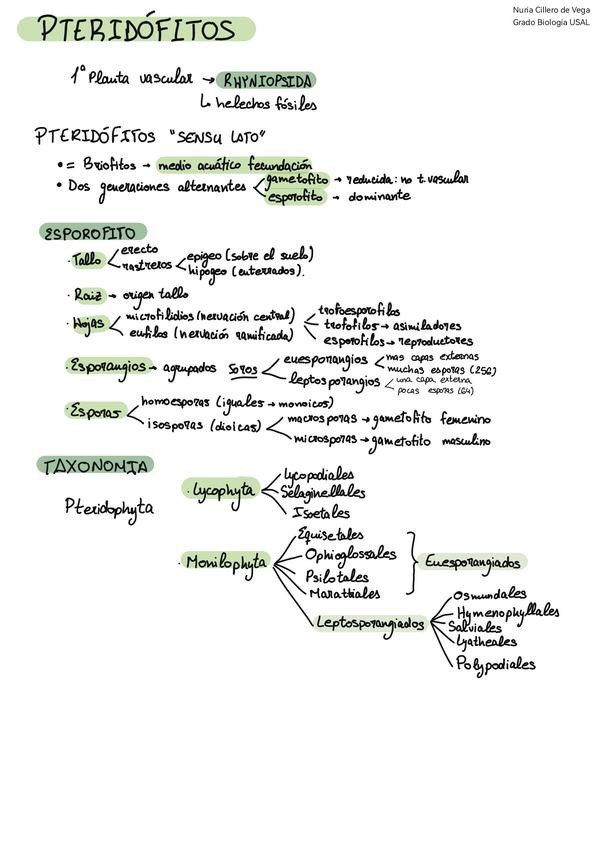 Nuria Cillero de Vega
Grado Biología USAL
PTERIDÓFITOS
1ª Planta vascular → RHYNIOPSIDA
↳ helechos fósiles
PTERIDÓFITOS "SENSU LATO"
• = Briofitos → medio acuático fecundación
• Dos generaciones alternantes
gametofito → reducida: no t. vascular
esporofito → dominante
ESPOROFITO
· Tallo
erecto
rastreros
epigeo (sobre el suelo)
hipogeo (enterrados).
· Raiz → origen tallo
· Hojas
microfilidios (nervación central)
eufilos (nervación ramificada)
trofoesporofilos
trofofilos → asimiladores
esporofilos → reproductores
· Esporangios → agrupados soros
euesporangios
mas capas externas
muchas esporas (256)
leptosporangios
una capa externa
pocas esporas (64)
· Esporas
homoesporas (iguales → monoicos)
isosporas (dioicas)
macrosporas → gametofito femenino
microsporas → gametofito masculino
TAXONOMIA
Pteridophyta
· Lycophyta
Lycopodiales
Selaginellales
Isoetales
· Monilophyta
Equisetales
Ophioglossales
Psilotales
Marattiales
Euesporangiados
Leptosporangiados
Osmundales
Hymenophyllales
Salviales
Cyatheales
Polypodiales